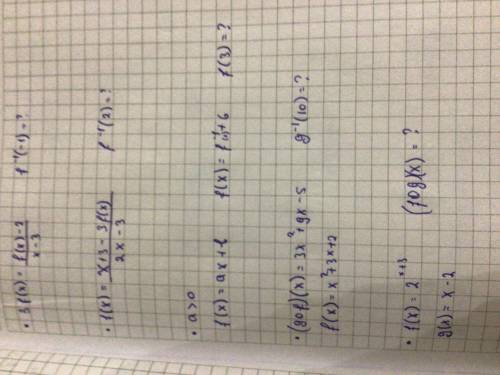 • 3f(x) = f(x)-2 / x-3    f⁻¹(-1) = ?
• f(x) = x+3-3f(x) / 2x-3    f⁻¹(2) = ?
• a>0
f(x) = ax+b    f(x) = f⁻¹(x)+6    f(3) = ?
• (gof)(x) = 3x²+9x-5    g⁻¹(10) = ?
f(x) = x²+3x+2
• f(x) = 2^(x+3)    (fog)(x) = ?
g(x) = x-2